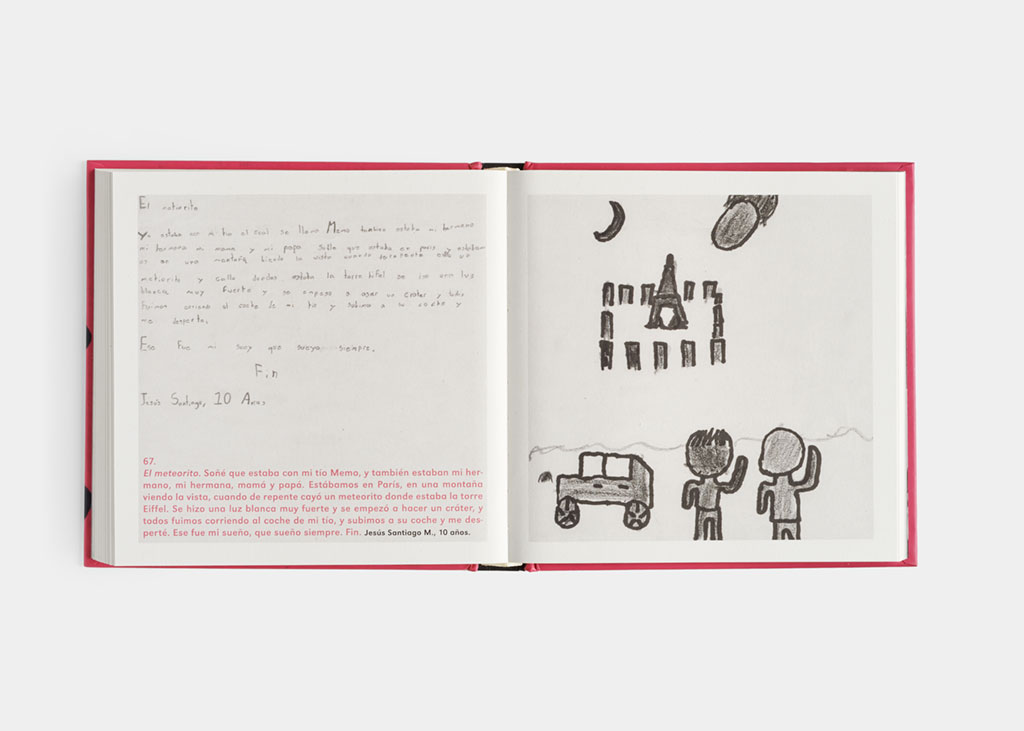 El metiorito
Yo estaba con mi tio el cual se llama Memo tambien estaba mi hermano
mi hermana mi mama y mi papa soñe que estaba en paris y estabam
os en una montaña viendo la vista cuando derrepente callo un
metiorito y callo donde estaba la torre Eifel se iso una luz
blanca muy fuerte y se empeso a aser un crater, y todos
fuimos corriendo al coche de mi tio y subimos a su coche y
me desperte.
Ese fue mi sueño que sueño siempre.
Fin
Jesús Santiago, 10 Años
67.
El meteorito. Soñé que estaba con mi tío Memo, y también estaban mi her-
mano, mi hermana, mamá y papá. Estábamos en París, en una montaña
viendo la vista, cuando de repente cayó un meteorito donde estaba la torre
Eiffel. Se hizo una luz blanca muy fuerte y se empezó a hacer un cráter, y
todos fuimos corriendo al coche de mi tío, y subimos a su coche y me des-
perté. Ese fue mi sueño, que sueño siempre. Fin. Jesús Santiago M., 10 años.